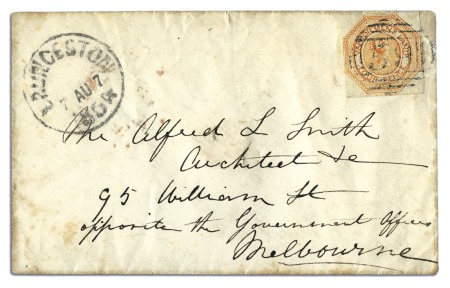 LAUNCESTON
7 AU 7
The Alfred L Smith
Architect &c
95 William St
opposite the Government Offices
Melbourne